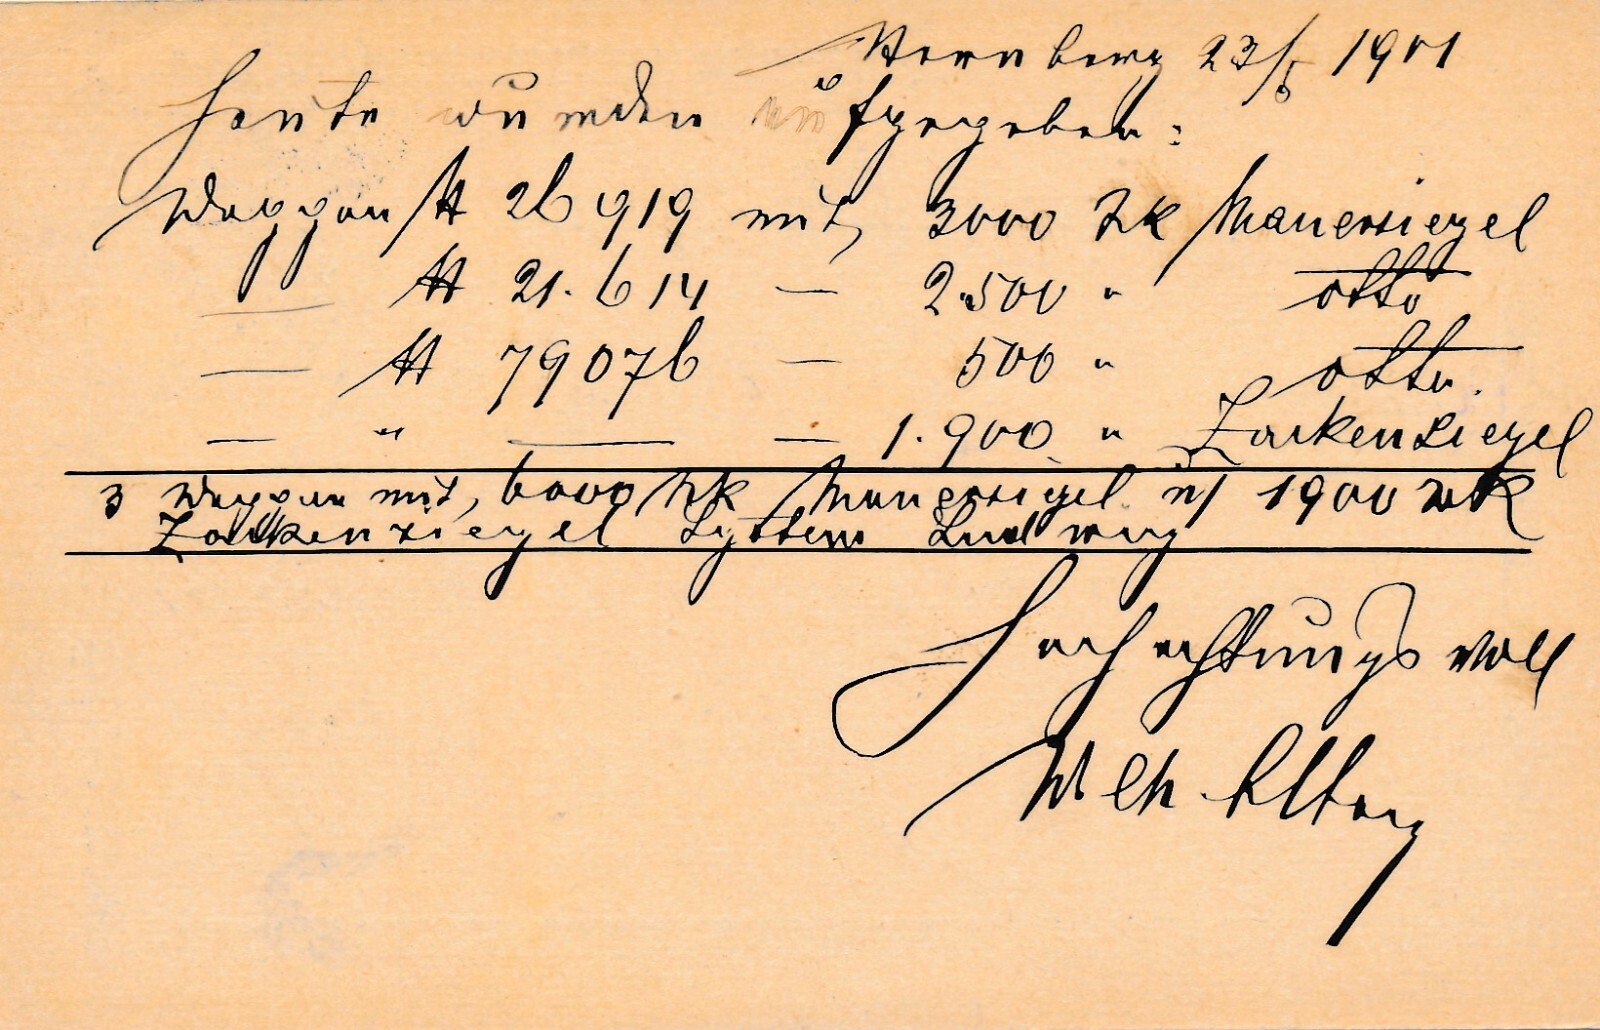 23/5 1901
Heute wurden aufgegeben:
Waggon N 26919 mit 3000 Stk Mauerziegel
— N 21.614 — 2.500 " dtto
— N 79076 — 500 " dtto.
— " — — 1.900 " Zackenziegel
3 Waggon mit 6000 Stk Mauerziegel u/ 1900 Stk
Zackenziegel System Ludwig
Hochachtungsvoll